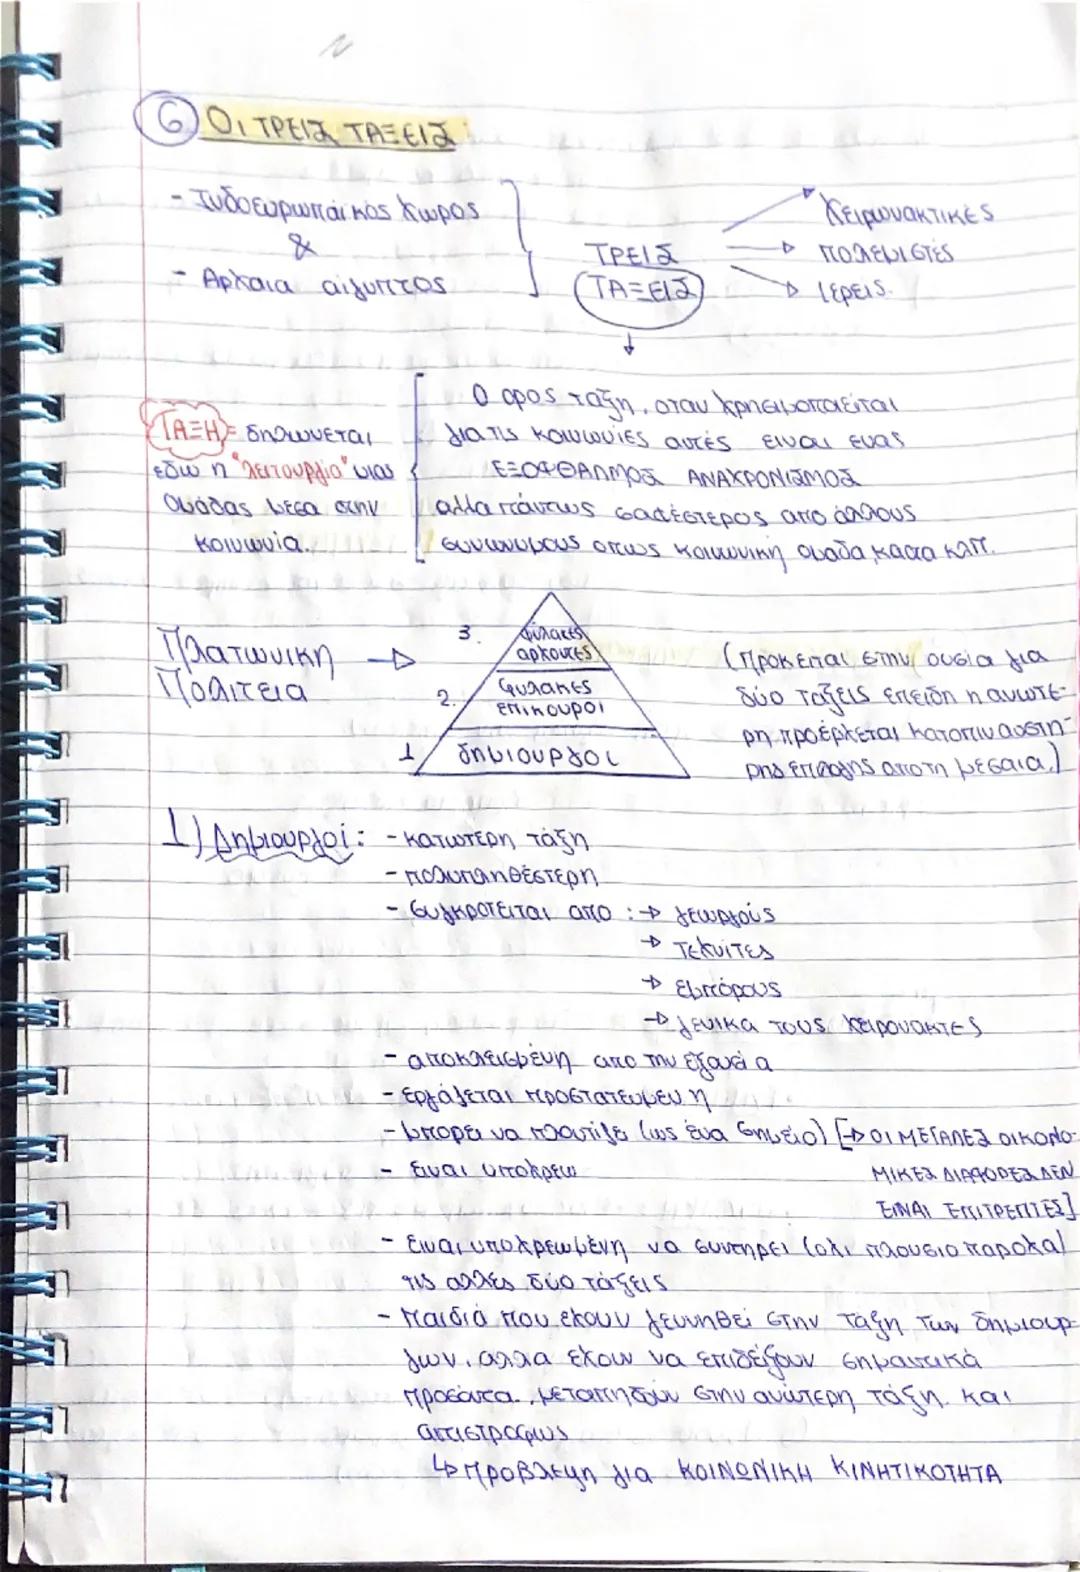 6 ΟΙ ΤΡΕΙΣ ΤΑΞΕΙΣ:
- Ινδοευρωπαϊκός Χώρος
&
- Αρχαια αίγυπτος
ΤΡΕΙΣ
ΤΑΞΕΙΣ
Χειρωνακτικές
πολεμιστές
ιερεις.
ΤΑΞΗ = δηλωνεται
εδω η "λειτουργία" μιας
Ομάδας μεσα στην
κοινωνία.
Ο ορος ταξη, οταν χρησιμοποιείται
για τις κοινωνιες αυτές ειναι ενας
ΕΞΟΦΘΑΛΜΟΣ ΑΝΑΧΡΟΝΙΣΜΟΣ
αλλα πάντως σαφέστερος απο άλλους
συνωνυμους οπως κοινωνικη ομαδα, καστα κλπ.
Πλατωνικη
Πολιτεια
3. φύλακες
αρχοντες
2. φυλακες
επικουροι
1 δημιουργοι
(Προκειται στην ουσια για
δύο ταξεις επειδη η ανωτε-
ρη προέρχεται κατοπιν αυστη-
ρης επιλογης απο τη μεσαια.)
1) Δημιουργοί: - κατωτερη τάξη
- πολυπληθέστερη
- συγκροτειται απο : → γεωργούς
→ τεχνίτες
→ εμπόρους
→ γενικα τους χειρονακτες
- αποκλεισμένη απο την εξουσία
- εργάζεται προστατευμενη
- μπορει να πλουτίζει (ως ένα σημείο) [→ ΟΙ ΜΕΓΑΛΕΣ ΟΙΚΟΝΟ-
ΜΙΚΕΣ ΔΙΑΦΟΡΕΣ ΔΕΝ
ΕΙΝΑΙ ΕΠΙΤΡΕΠΤΕΣ]
- ειναι υποχρεω
- Ειναι υποχρεωμένη να συντηρει (οχι πλουσιοπαροχα)
τις αλλες δύο τάξεις
- Παιδιά που εχουν γεννηθεί στην ταξη των δημιουρ-
γων, αλλα εχουν να επιδείξουν σημαντικά
προσόντα, μεταπηδούν στην ανώτερη τάξη. και
αντιστροφως
↳ Προβλεψη για ΚΟΙΝΩΝΙΚΗ ΚΙΝΗΤΙΚΟΤΗΤΑ